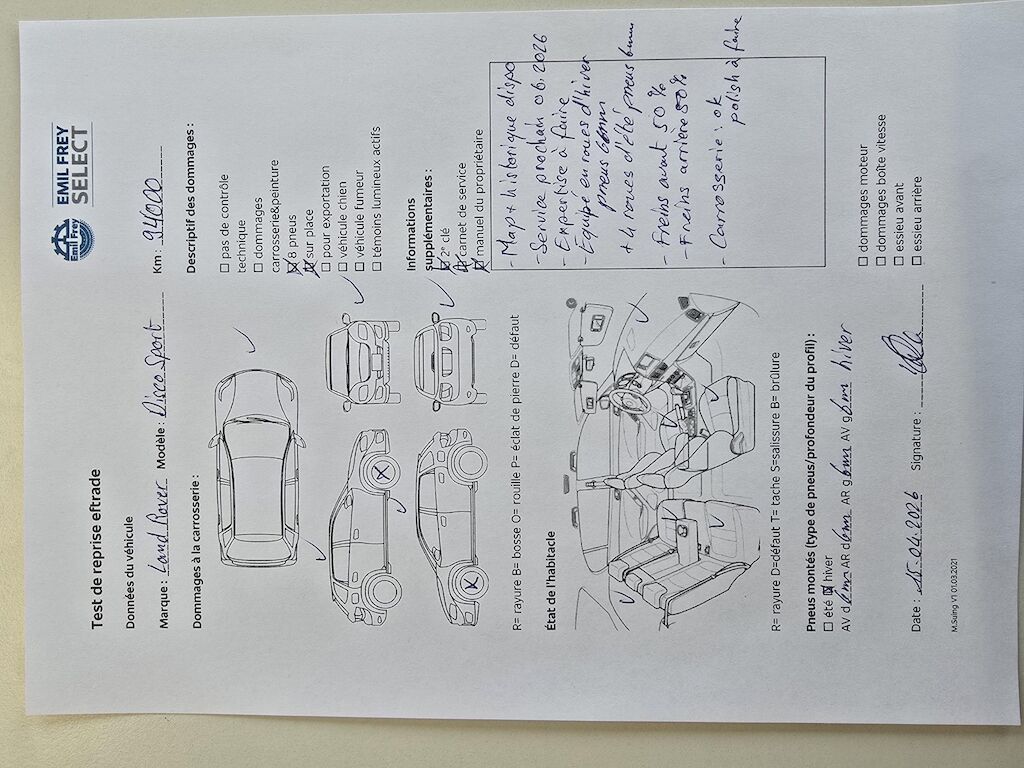 EMIL FREY
SELECT
Emil Frey
Test de reprise eftrade
Données du véhicule
Marque : Land Rover Modèle : Disco Sport Km : 94000
Dommages à la carrosserie :
Descriptif des dommages :
☐ pas de contrôle
technique
☐ dommages
carrosserie&peinture
☒ 8 pneus
☒ sur place
☐ pour exportation
☐ véhicule chien
☐ véhicule fumeur
☐ témoins lumineux actifs
Informations
supplémentaires :
☒ 2° clé
☒ carnet de service
☒ manuel du propriétaire
- Map + historique dispo
- Service prochain 06.2026
- Expertise à faire
- Equipé en roues d'hiver
pneus 6mm
+ 4 roues d'été pneus 6mm
- Freins avant 50%
- Freins arrière 50%
- Carrosserie : ok
polish à faire
R= rayure B= bosse O= rouille P= éclat de pierre D= défaut
État de l'habitacle
R= rayure D=défaut T= tache S=salissure B= brûlure
Pneus montés (type de pneus/profondeur du profil) :
☐ été ☒ hiver
AV d 6mm AR d 6mm AR g 6mm AV g 6mm hiver
☐ dommages moteur
☐ dommages boîte vitesse
☐ essieu avant
☐ essieu arrière
Date : 15.04.2026 Signature :
M.Suing V1 01.03.2021